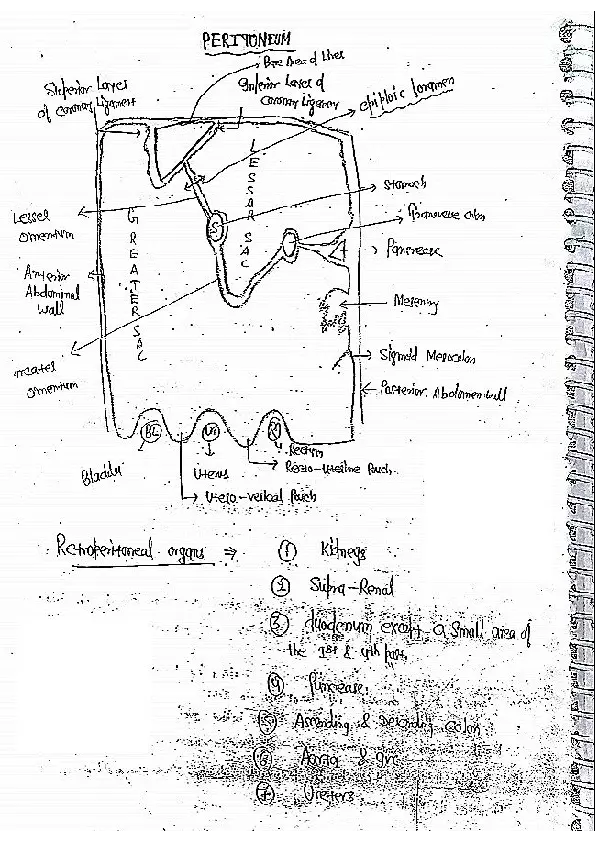 PERITONEUM
Bare Area of Liver
Superior Layer
of Coronary Ligament
Inferior Layer of
Coronary Ligament
Epiploic foramen
LESSAR SAC
GREATER SAC
Stomach
Transverse colon
Pancreas
Lesser
omentum
Anterior
Abdominal
wall
Mesentry
Sigmoid Mesocolon
Posterior Abdomen wall
Greater
omentum
S
BL
Ut
R
Bladder
Uterus
Rectum
Recto-uterine Pouch
Utero-vesical Pouch
Retroperitoneal organs ⇒ ① Kidneys
② Supra-Renal
③ duodenum except a small area of
the 1st & 4th part.
④ Pancreas.
⑤ Ascending & Decending colon
⑥ Aorta & IVC
⑦ Ureters